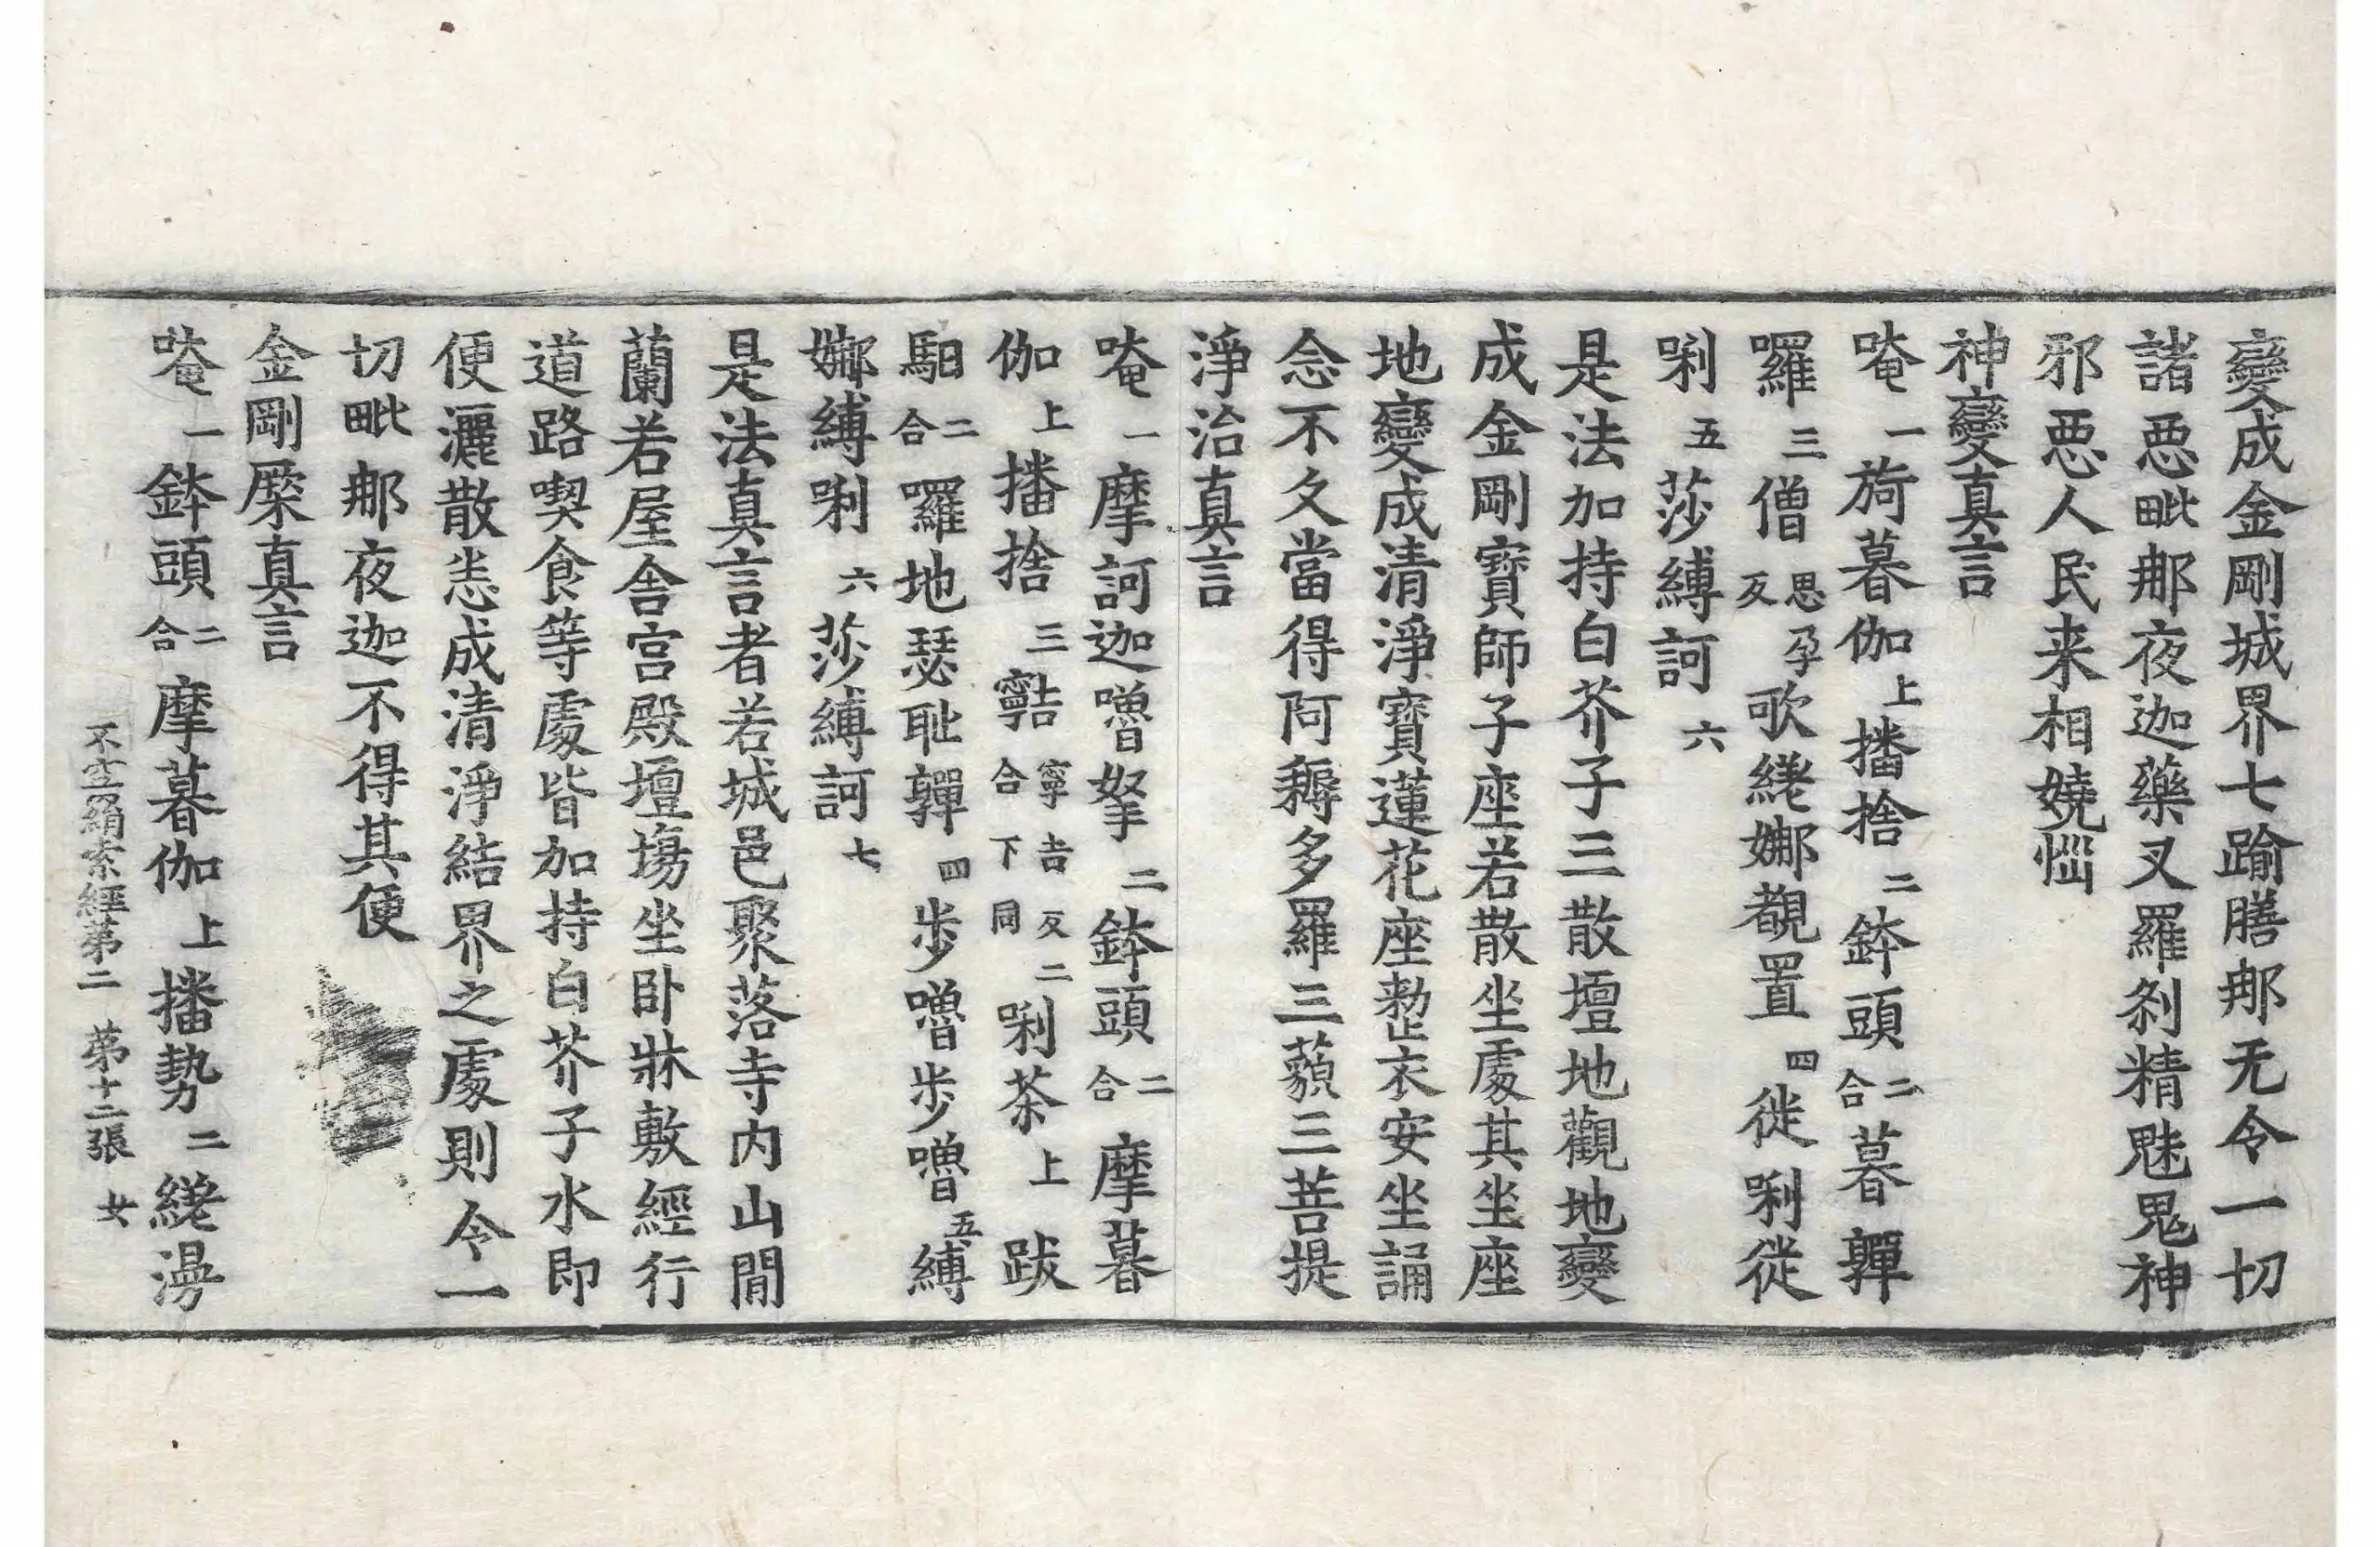 變成金剛城界七踰膳那无令一切
諸惡毗那夜迦藥叉羅剎精魅鬼神
邪惡人民来相嬈惱
神變真言
唵一旖暮伽上播捨二鉢頭二合暮嚲
囉三僧思孕反歌綣娜覩置四徙唎徙
唎五莎縛訶六
是法加持白芥子三散壇地觀地變
成金剛寶師子座若散坐處其坐座
地變成清淨寶蓮花座整衣安坐誦
念不久當得阿耨多羅三藐三菩提
淨治真言
唵一摩訶迦嚕拏二鉢頭二合摩暮
伽上播捨三寧吉反二合下同唎茶上跋
馹二合囉地瑟耻嚲四步嚕步嚕五縛
娜縛唎六莎縛訶七
是法真言者若城邑聚落寺内山閒
蘭若屋舍宮殿壇場坐卧牀敷經行
道路喫食等處皆加持白芥子水即
便灑散恙成清淨結界之處則令一
切毗那夜迦不得其便
金剛橜真言
唵一鉢頭二合摩暮伽上播勢二綣漫
不空羂索經第二 第十二張 女